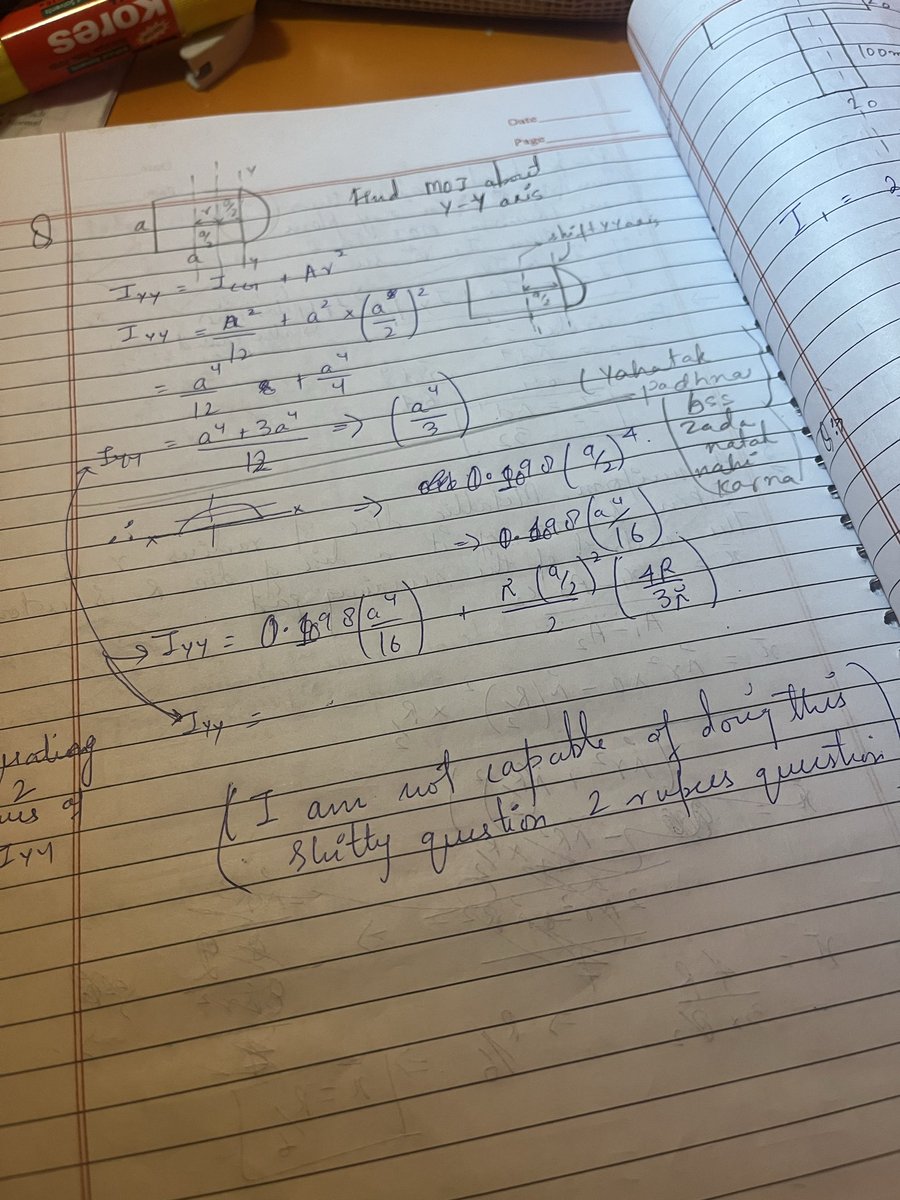 Kores
20
100m
20
I₁ = 2
Date
Page
Q
a
r
a/2
a/2
d
Y
Y
Find MOI about
Y-Y axis
shift YY axis
a/2
I_YY = I_CG + Ar²
I_YY = A²/12 + a² × (a/2)²
= a⁴/12 + a⁴/4
I_YY = (a⁴ + 3a⁴)/12 => (a⁴/3)
(Yahatak
padhna
bss
zada
natak
nahi
karna)
∴ x x => 0.198 (a/2)⁴
=> 0.198 (a⁴/16)
→ I_YY = 0.198 (a⁴/16) + π(a/2)²/2 (4R/3π)
I_YY =
2
I_YY
(I am not capable of doing this
shitty question 2 rupees question)